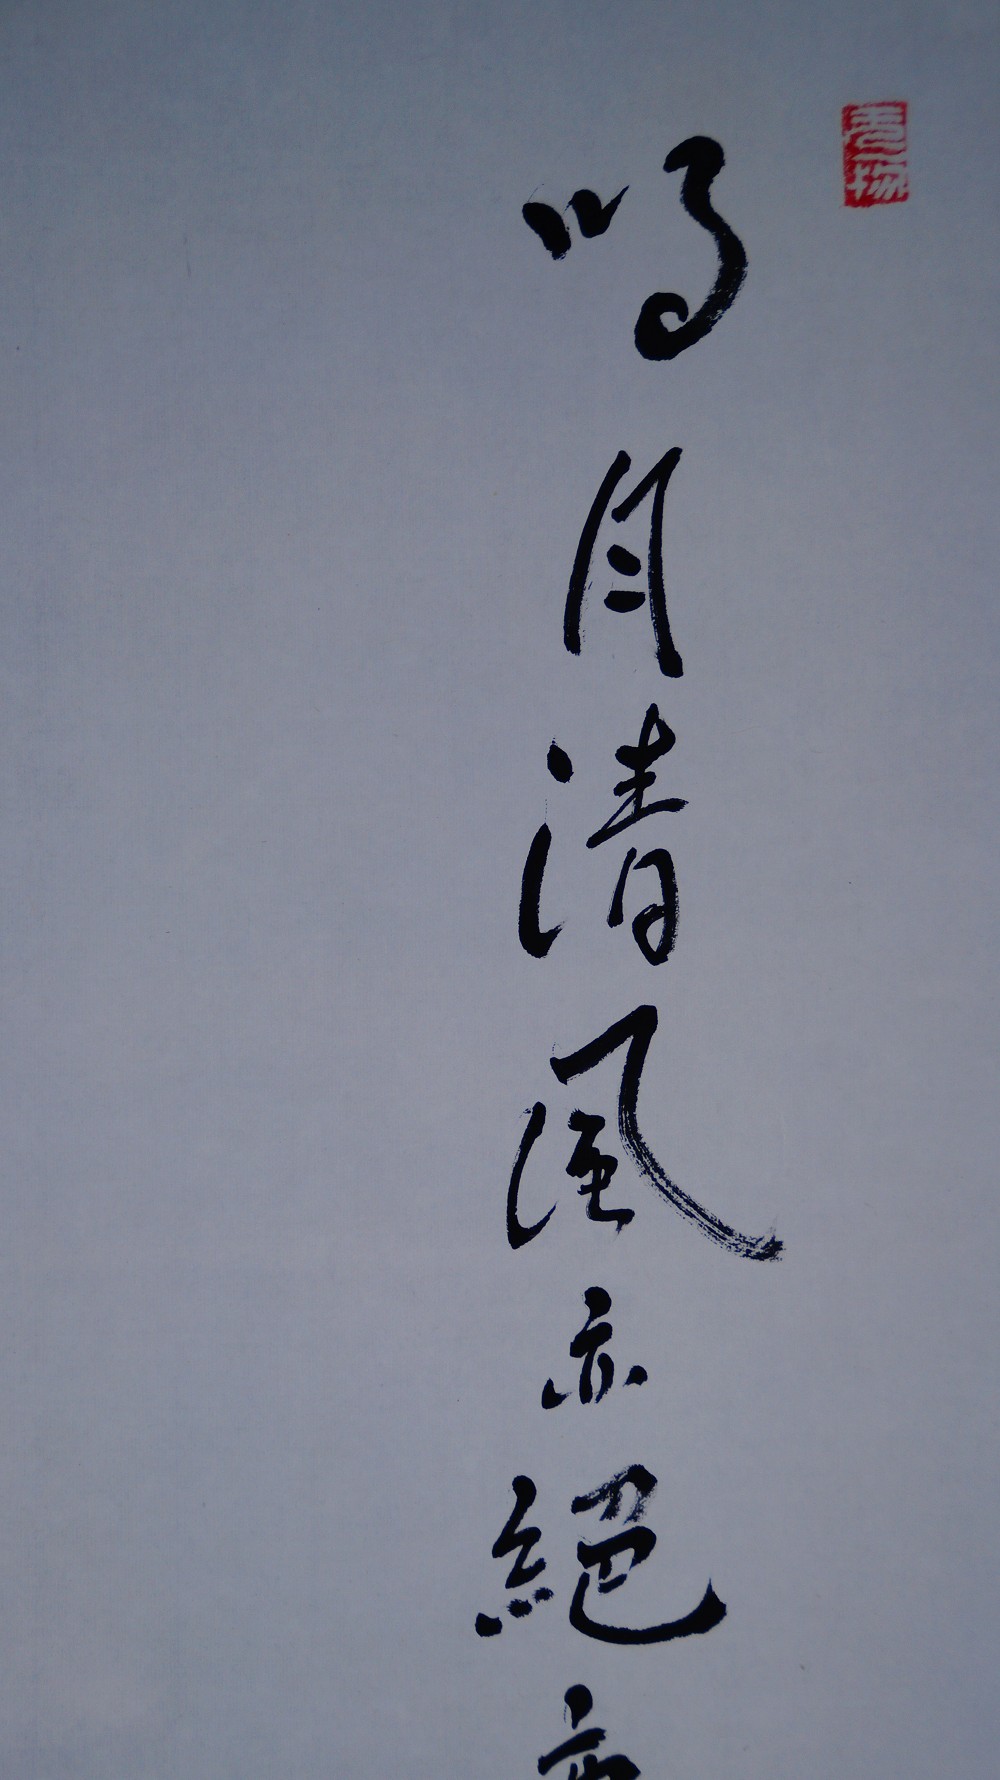 明月清風亦絕